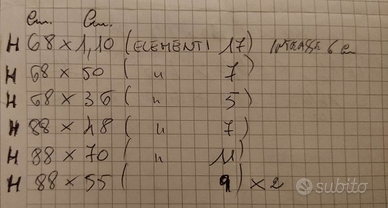 Cm. Cm.
H 68 x 1,10 (ELEMENTI 17) INTERASSE 6 cm
H 68 x 50 ( " 7 )
H 68 x 36 ( " 5 )
H 88 x 48 ( " 7 )
H 88 x 70 ( " 11 )
H 88 x 55 ( 9 ) x 2
subito